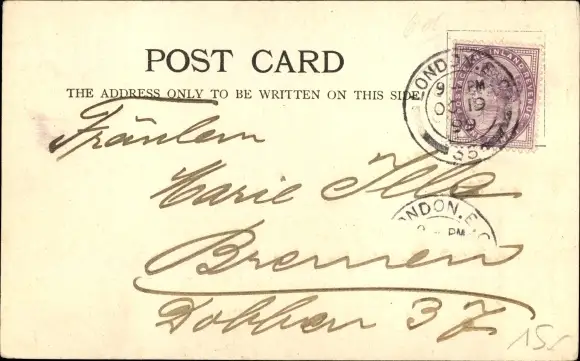 POST CARD
THE ADDRESS ONLY TO BE WRITTEN ON THIS SIDE
LONDON.E.C.
9 PM
OC 19
99
55
INLAND REVENUE
Fräulein
Marie Illa
LONDON.E.C
PM
Bremen
Dobben 37
15.-